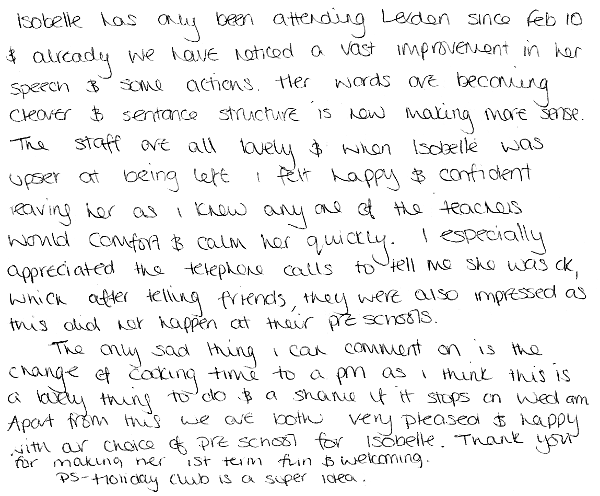 Isobelle has only been attending Leiden since Feb 10
& already we have noticed a vast improvement in her
speech & some actions. Her words are becoming
clearer & sentance structure is now making more sense.
The staff are all lovely & when Isobelle was
upset at being left i felt happy & confident
leaving her as i knew any one of the teachers
would comfort & calm her quickly. I especially
appreciated the telephone calls to tell me she was ok,
which after telling friends, they were also impressed as
this did not happen at their pre schools.
The only sad thing i can comment on is the
change of cooking time to a pm as i think this is
a lovely thing to do & a shame if it stops on Wed am
Apart from this we are both very pleased & happy
with our choice of pre school for Isobelle. Thank you
for making her 1st term fun & welcoming.
PS-Holiday club is a super idea.